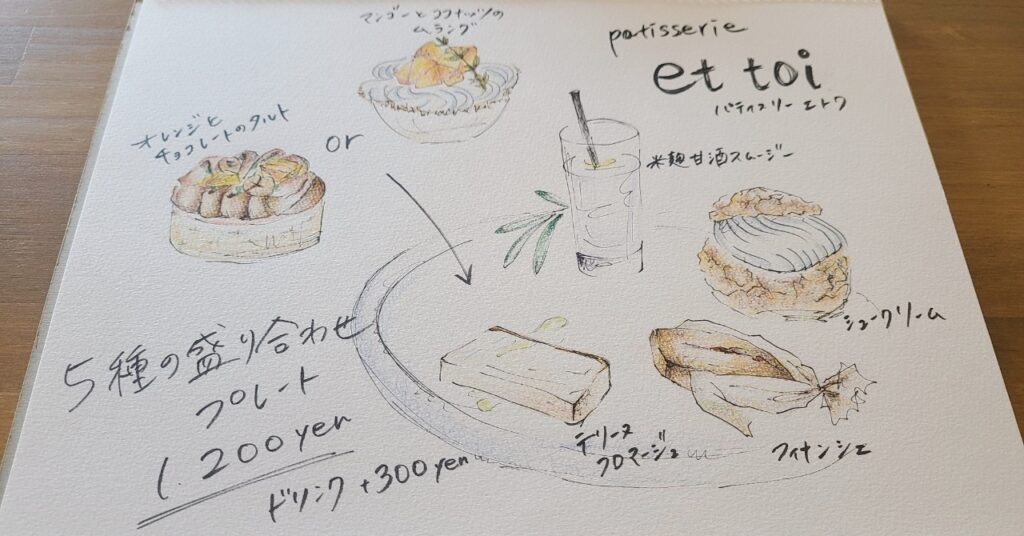 マンゴーとココナッツの
ムラング
patisserie
et toi
パティスリー エトワ
オレンジと
チョコレートのタルト
or
米麹甘酒スムージー
シュークリーム
5種の盛り合わせ
プレート
1.200yen
ドリンク+300yen
テリーヌ
フロマージュ
フィナンシェ